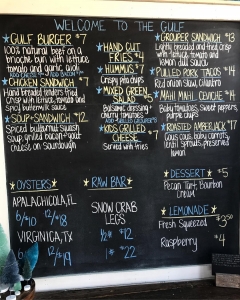 WELCOME TO THE GULF
GULF BURGER $7
100% natural beef on a
brioche bun with lettuce
tomato and garlic aioli
ADD CHEESE ADD BACON
CHICKEN SANDWICH $7
Hand breaded tenders fried
Crisp with lettuce, tomato and
spicy buttermilk sauce
SOUP + SANDWICH $12
Spiced butternut Squash
Soup grilled bacon + goat
Cheese on Sourdough
HAND CUT
FRIES $4
HUMMUS $7
Crispy pita chips
MIXED GREEN
SALAD $5
Balsamic dressing,
cherry tomatoes
KIDS GRILLED
CHEESE $7
Served with fries
GROUPER SANDWICH $13
Lightly breaded and fried crisp
with lettuce, tomato and
lemon dill sauce
PULLED PORK TACOS $14
Red onion slaw, Cilantro
MAHI MAHI CEVICHE $14
Baby tomatoes, Sweet peppers,
purple chips
ROASTED AMBERJACK $17
Cous cous, baby carrots,
lentil sprouts, preserved
lemon
OYSTERS
APALACHICOLA, FL
6/$10 12/$18
VIRGINICA, TX
12/$19
RAW BAR
SNOW CRAB
LEGS
½# $12
1# $22
DESSERT $5
Pecan Tart, Bourbon
Cream
LEMONADE
Fresh Squeezed $3.50
Raspberry $4